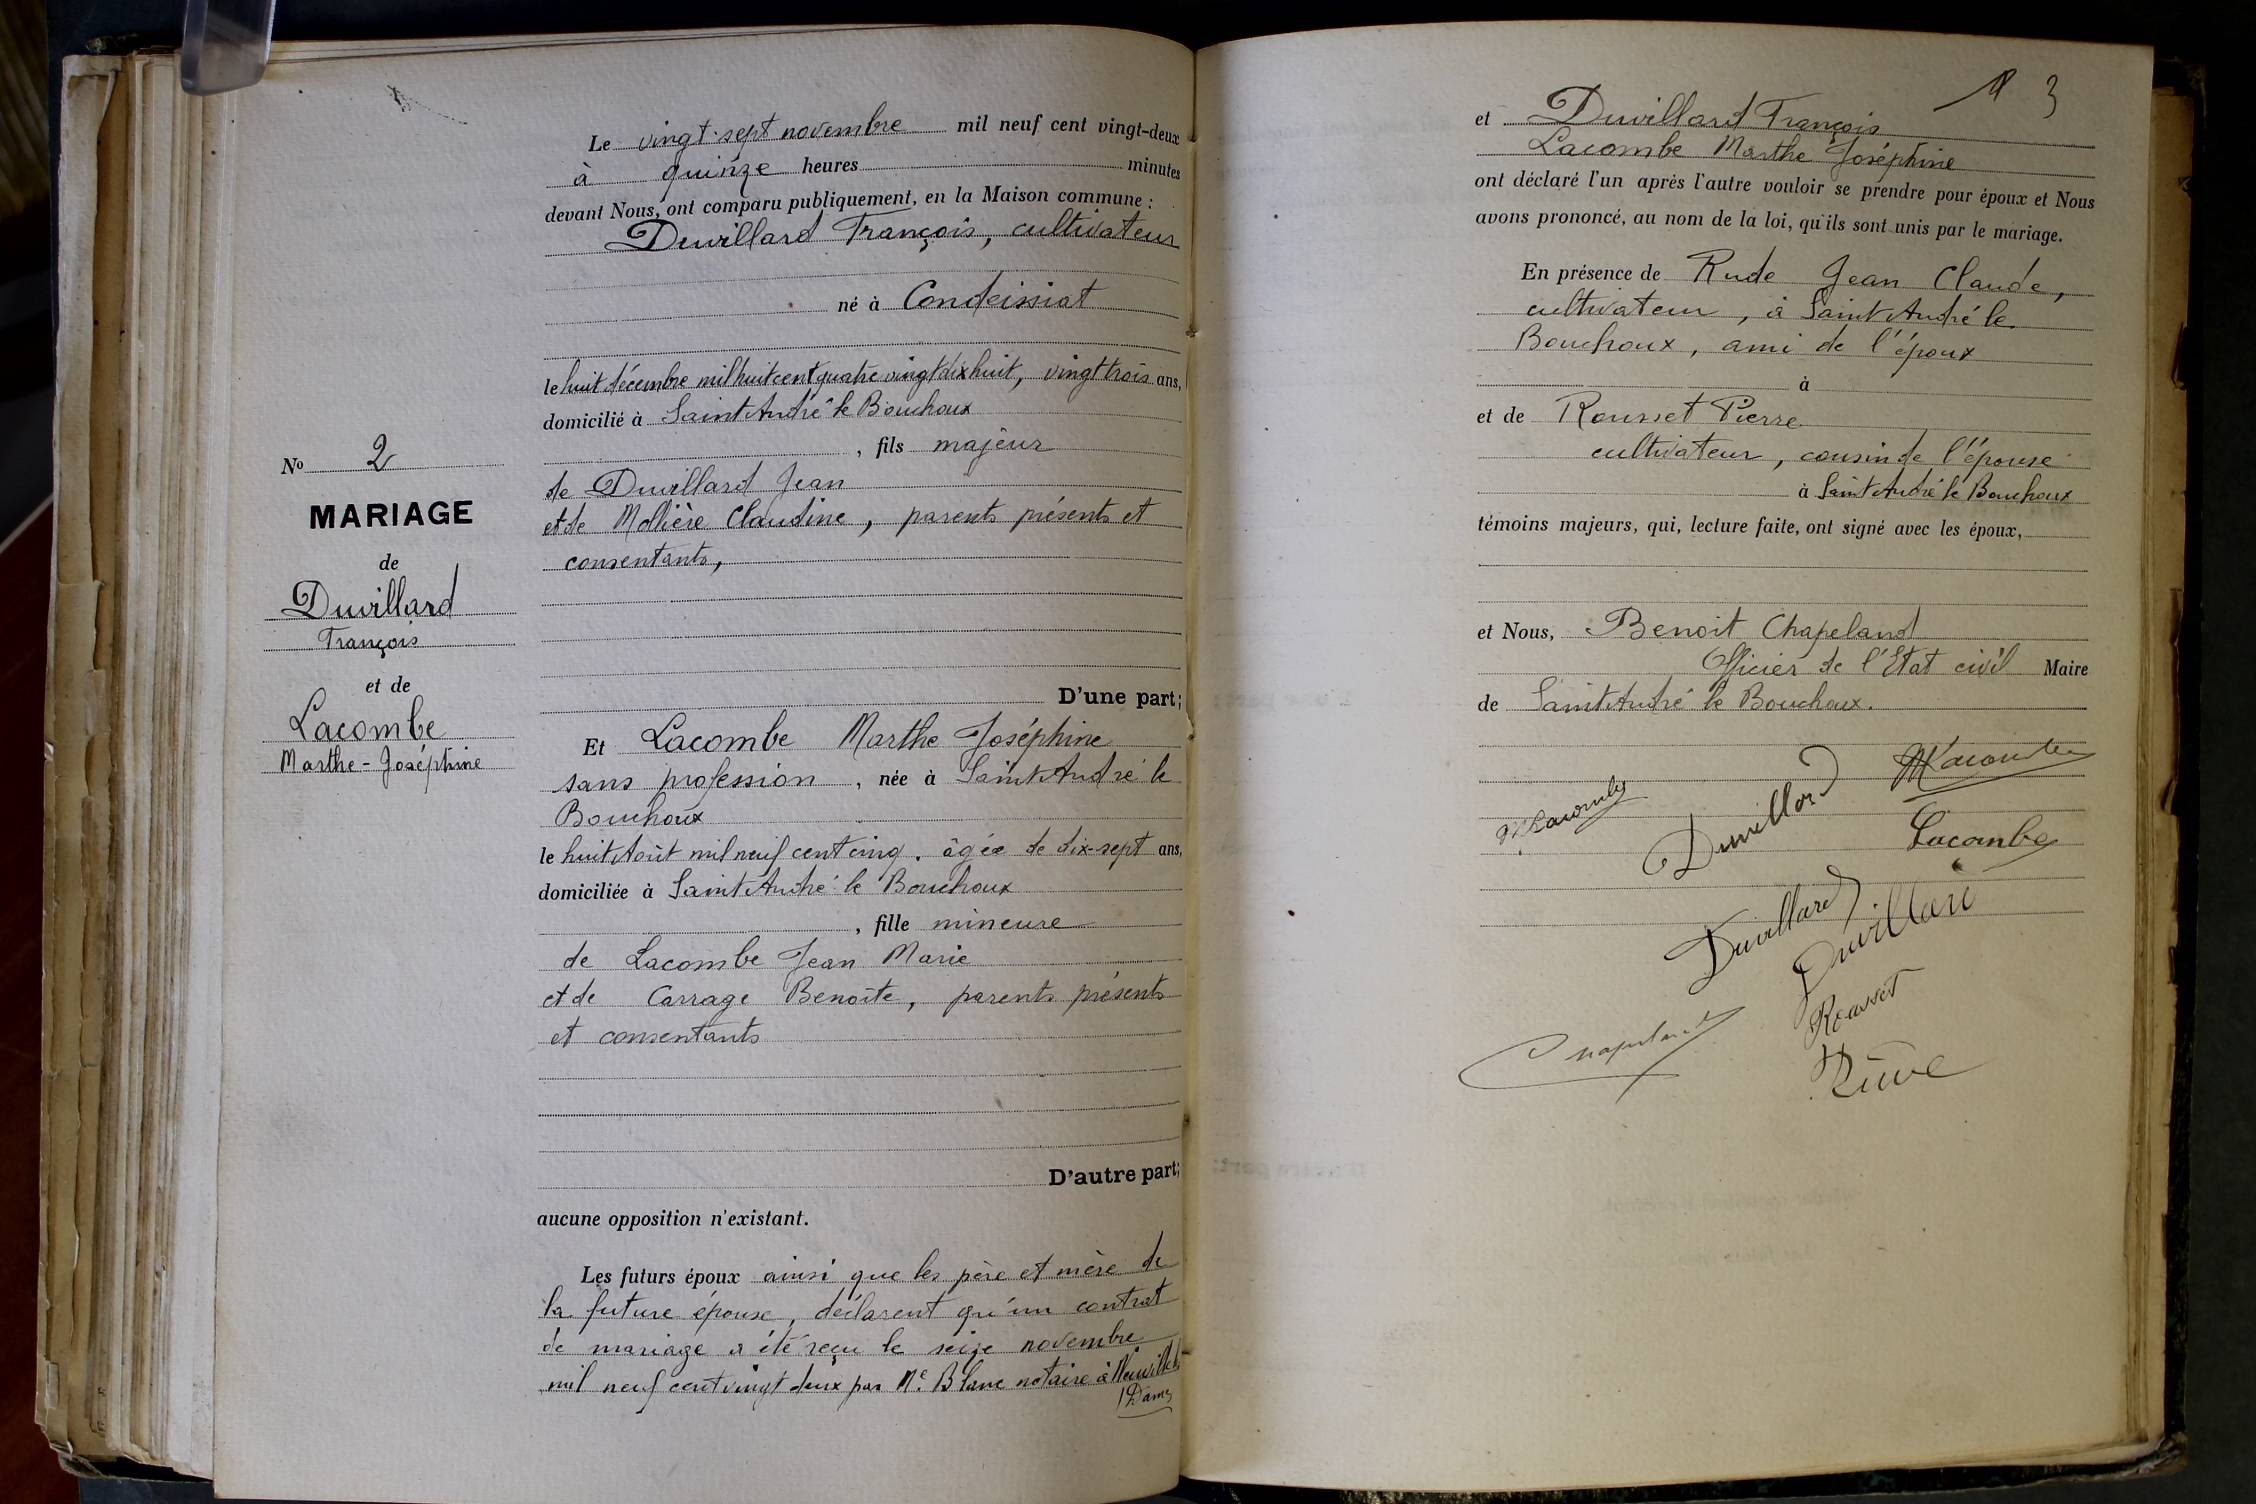 N° 2
MARIAGE
de
Duvillard
François
et de
Lacombe
Marthe-Joséphine
Le vingt-sept novembre mil neuf cent vingt-deux
à quinze heures minutes
devant Nous, ont comparu publiquement, en la Maison commune :
Duvillard François, cultivateur
né à Condeissiat
le huit décembre mil huit cent quatre vingt dix huit, vingt trois ans,
domicilié à Saint André le Bouchoux
, fils majeur
de Duvillard Jean
et de Mollière Claudine, parents présents et
consentants,
D'une part;
Et Lacombe Marthe Joséphine
sans profession, née à Saint André le
Bouchoux
le huit Août mil neuf cent cinq, âgée de dix-sept ans,
domiciliée à Saint André le Bouchoux
, fille mineure
de Lacombe Jean Marie
et de Carrage Benoîte, parents présents
et consentants
D'autre part;
aucune opposition n'existant.
Les futurs époux ainsi que les père et mère de
la future épouse, déclarent qu'un contrat
de mariage a été reçu le seize novembre
mil neuf cent vingt deux par Me Blanc notaire à Neuville les
Dames
3
et Duvillard François
Lacombe Marthe Joséphine
ont déclaré l'un après l'autre vouloir se prendre pour époux et Nous
avons prononcé, au nom de la loi, qu'ils sont unis par le mariage.
En présence de Rude Jean Claude,
cultivateur, à Saint André le
Bouchoux, ami de l'époux
à
et de Rousset Pierre
cultivateur, cousin de l'épouse
à Saint André le Bouchoux
témoins majeurs, qui, lecture faite, ont signé avec les époux,
et Nous, Benoit Chapeland
Officier de l'Etat civil Maire
de Saint André le Bouchoux.
M Lacombe
M Lacombe
Duvillard
Lacombe
Duvillard
Duvillard
Rousset
Chapeland
Rude